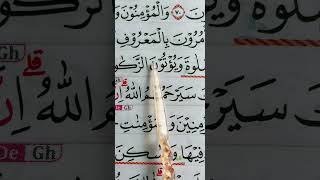 ن ٧٠ وَالْمُؤْمِنُونَ وَ
مُرُونَ بِالْمَعْرُوفِ
Gh
لٰوةَ وَيُؤْتُونَ الزَّكٰو
قلے
سَيَرْحَمُهُمُ اللّٰهُ اِنَّ
مِنِيْنَ وَالْمُؤْمِنٰتِ
De Gh
فِيْهَا وَمَسٰكِنَ